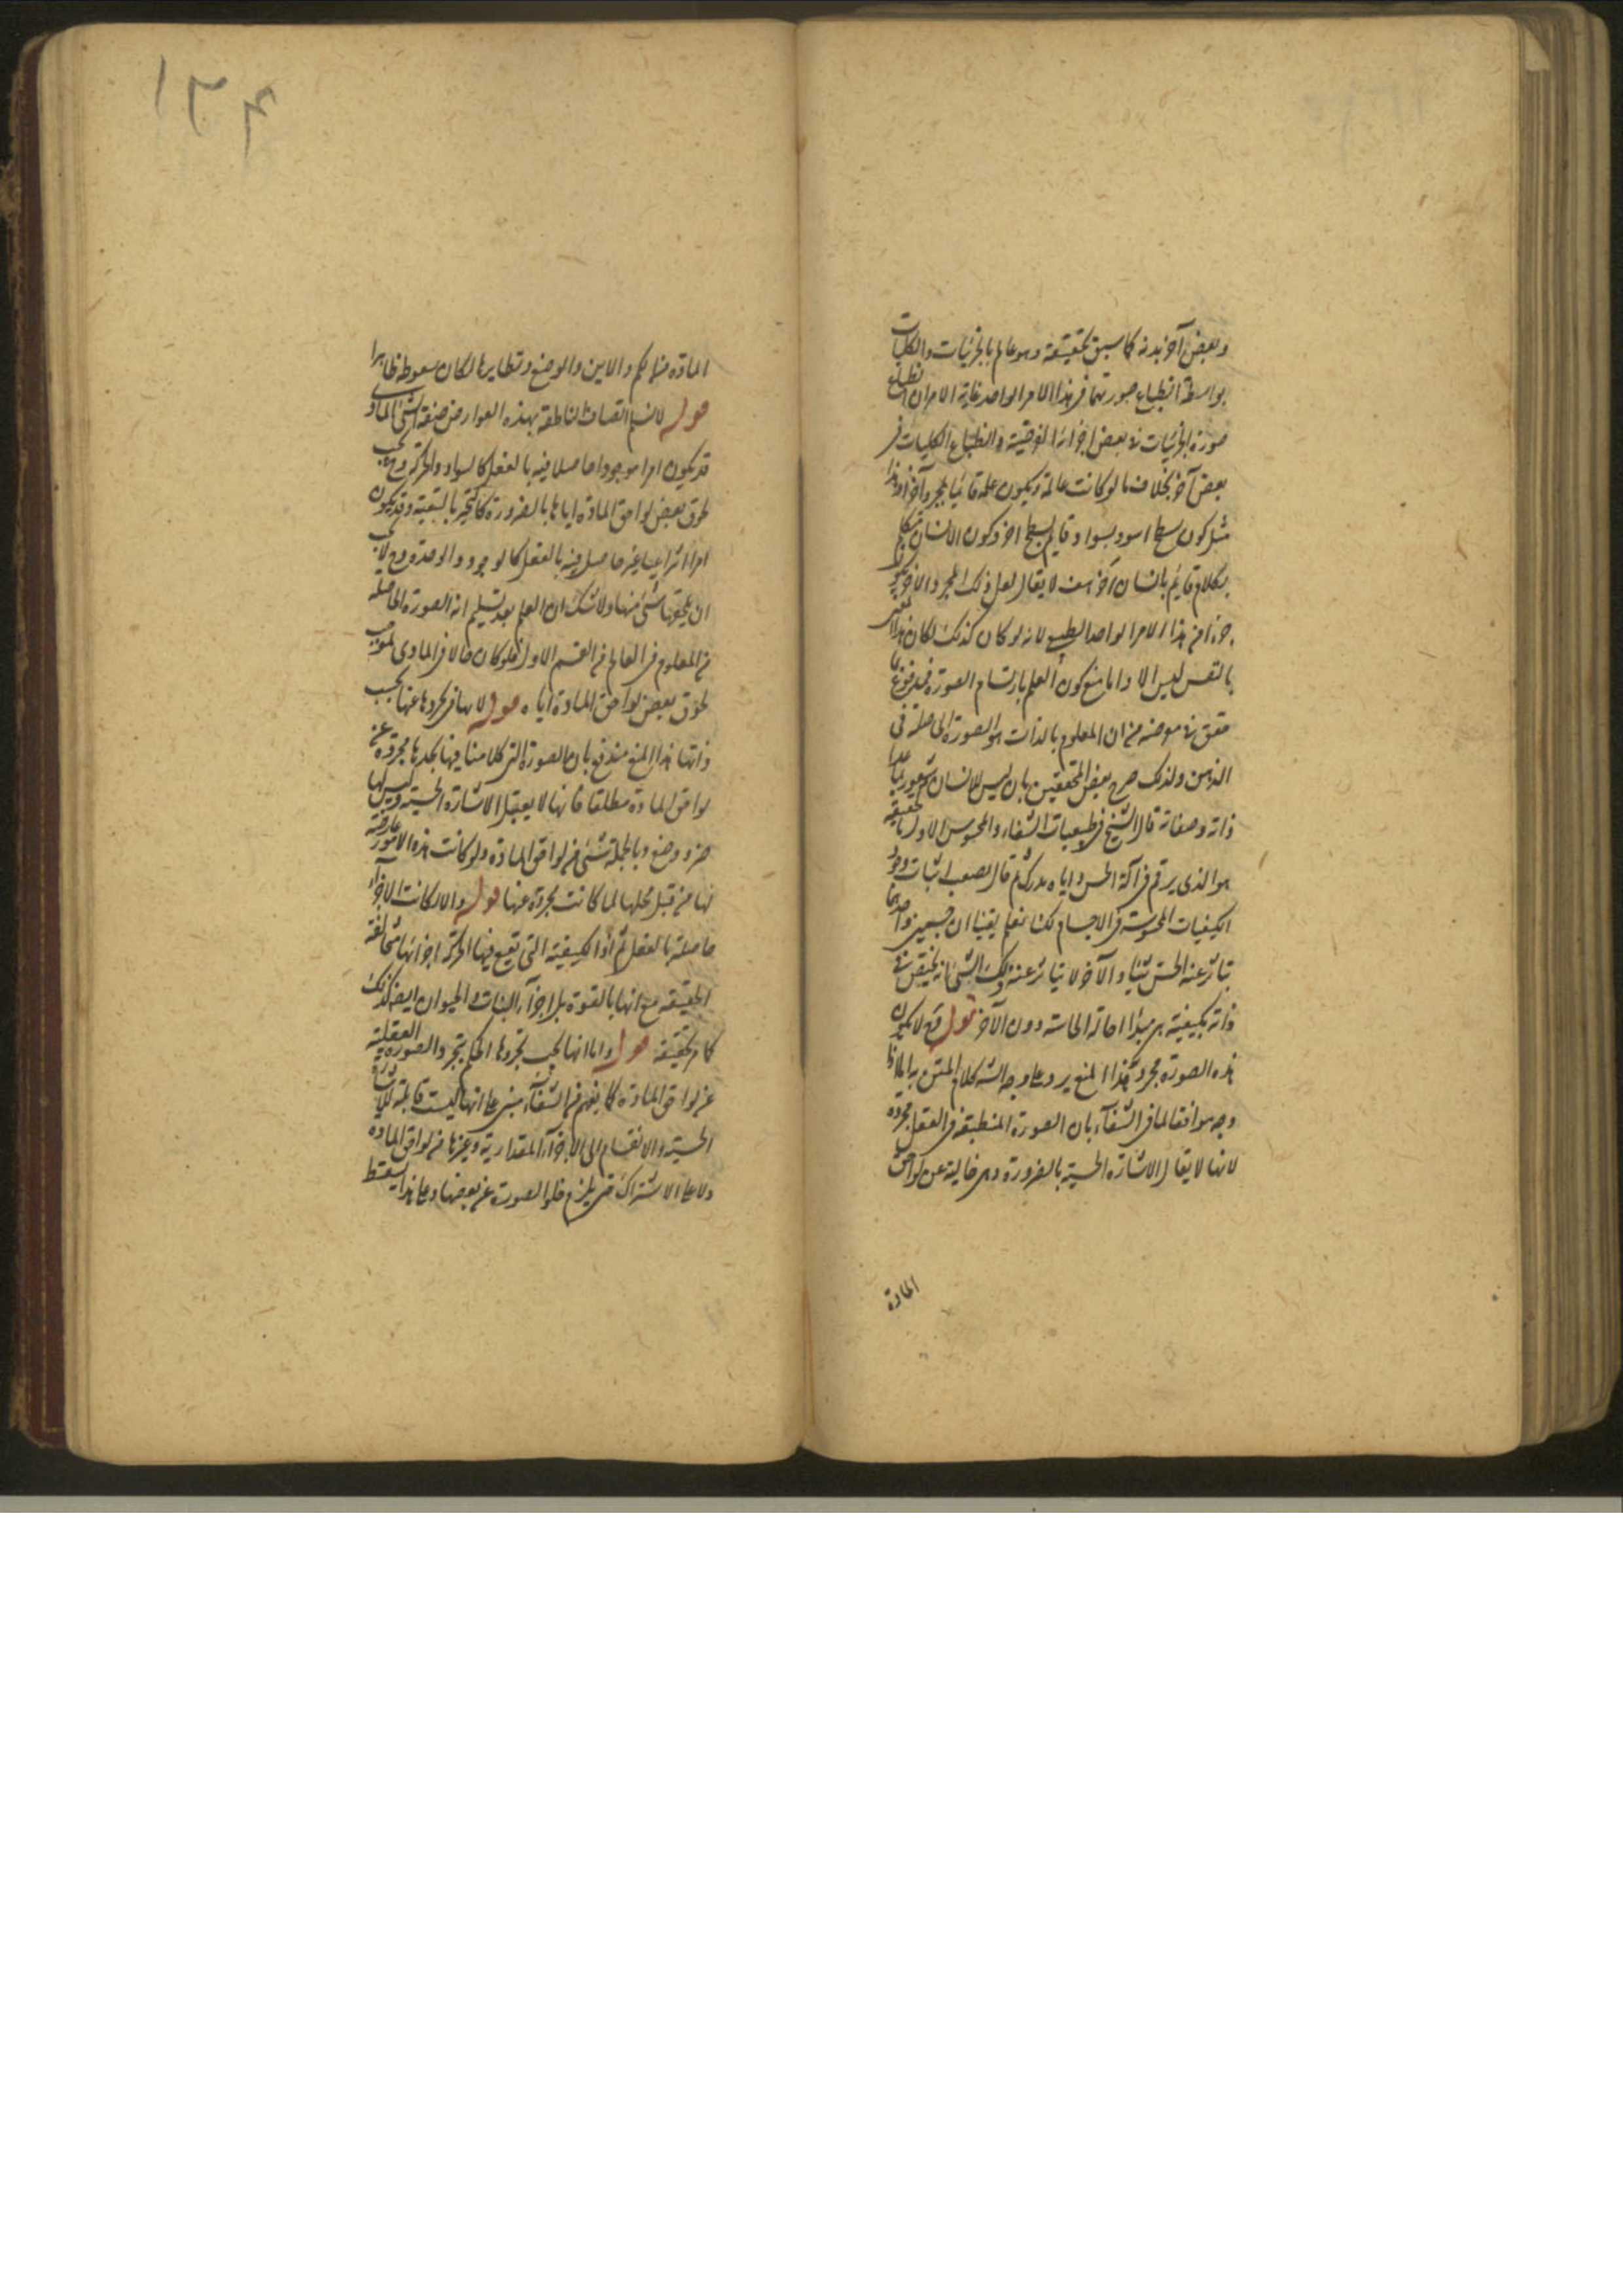 وبعض آخر بدنه كما سبق تحقيقه وهو عالم بالجزئيات والكليات
بواسطة انطباع صورتهما فى هذا الامر الواحد غاية الامر ان انطباع
صورة الجزئيات فى بعض اجزائه الفرضية وانطباع الكليات فى
بعض آخر بخلاف ما لو كانت عالمة ويكون علمه قائما بمجرد آخر او هذا
مثل كون سطح اسود بسواد قايم بسطح اخر وكون الانسان متكلم
بكلام قايم بانسان آخر هف لا يقال لعل ذلك المجرد الآخر يكون
جزءا من هذا الامر الواحد الطبيعى لانه لو كان كذلك لكان هذا
بالنفس ليس الا واما منع كون العلم بارتسام الصورة فمدفوع
حقق فى موضعه من ان المعلوم بالذات هو الصورة الحاصلة فى
الذهن ولذلك صرح بعض المحققين بان ليس للانسان شعور بما عدا
ذاته وصفاته قال الشيخ فى طبيعيات الشفاء والمحسوس الاول بالحقيقة
هو الذى يرتسم فى آلة الحس واياه يدرك ثم قال يصعب اثبات وجود
الكيفيات المحسوسة فى الاجسام لكنا نعلم يقينا ان جسمين واحدهما
يتاثر عنه الحس شيئا والآخر لا يتاثر عنه ذلك الشئ انه مختص فى
ذاته بكيفية هى مبدأ احالة الحاسة دون الآخر قوله فح لا يكون
هذه الصورة مجردة هذا المنع يرد على وجه الشه كلام المتن
وجه موافقا لما فى الشفاء بان الصورة المنطبعة فى العقل مجردة
لانها لا يقال الاشارة الحسية بالضرورة وهى خالية عن لواحق
المادة
١٢٤
المادة من الكم والاين والوضع ونظايرها لكان سقوطه ظاهرا
قوله لا نسلم اتصاف الناطقة بهذه العوارض صفة الشئ المادى
قد يكون امرا موجودا حاصلا فيه بالفعل كالسواد والحركة وح يجب
لحوق بعض لواحق المادة اياها بالضرورة كالتحيز بالتبعية وقد يكون
امرا انتزاعيا غير حاصل فيه بالفعل كالوجود والوحدة وح لا يجب
ان يلحقها شئ منها ولا شك ان العلم بعد تسليم انه الصورة الحاصلة
من المعلوم فى العالم من القسم الاول فلو كان حالا فى المادى لوجب
لحوق بعض لواحق المادة اياه قوله لانها فى تجردها عنها بحسب
ذاتها هذا المنع مندفع بان الصورة التى كلامنا فيها نجدها مجردة عن
لواحق المادة مطلقا فانها لا يقبل الاشارة الحسية وليس لها
حيز ووضع وبالجملة شئ من لواحق المادة ولو كانت هذه الامور عارضة
لها من قبل محلها لما كانت مجردة عنها قوله والا لكانت الاجزاء
حاصلة بالفعل ثم اذا الكيفية التى تقع فيها الحركة اجزائها متخالفة
الحقيقة مع انها بالقوة بل اجزاء النبات والحيوان ايضا كذلك
كما مر تحقيقه قوله واما انها يجب تجردها الحكم بتجرد الصورة العقلية
عن لواحق المادة كما يفهم من الشفاء مبنى على انها ليست قابلة للاشارة
الحسية والانقسام الى الاجزاء المقدارية وغيرها من لواحق المادة
ولا على الاشتراك حتى يلزم خلو الصورة عن بعضها وعلى هذا يسقط